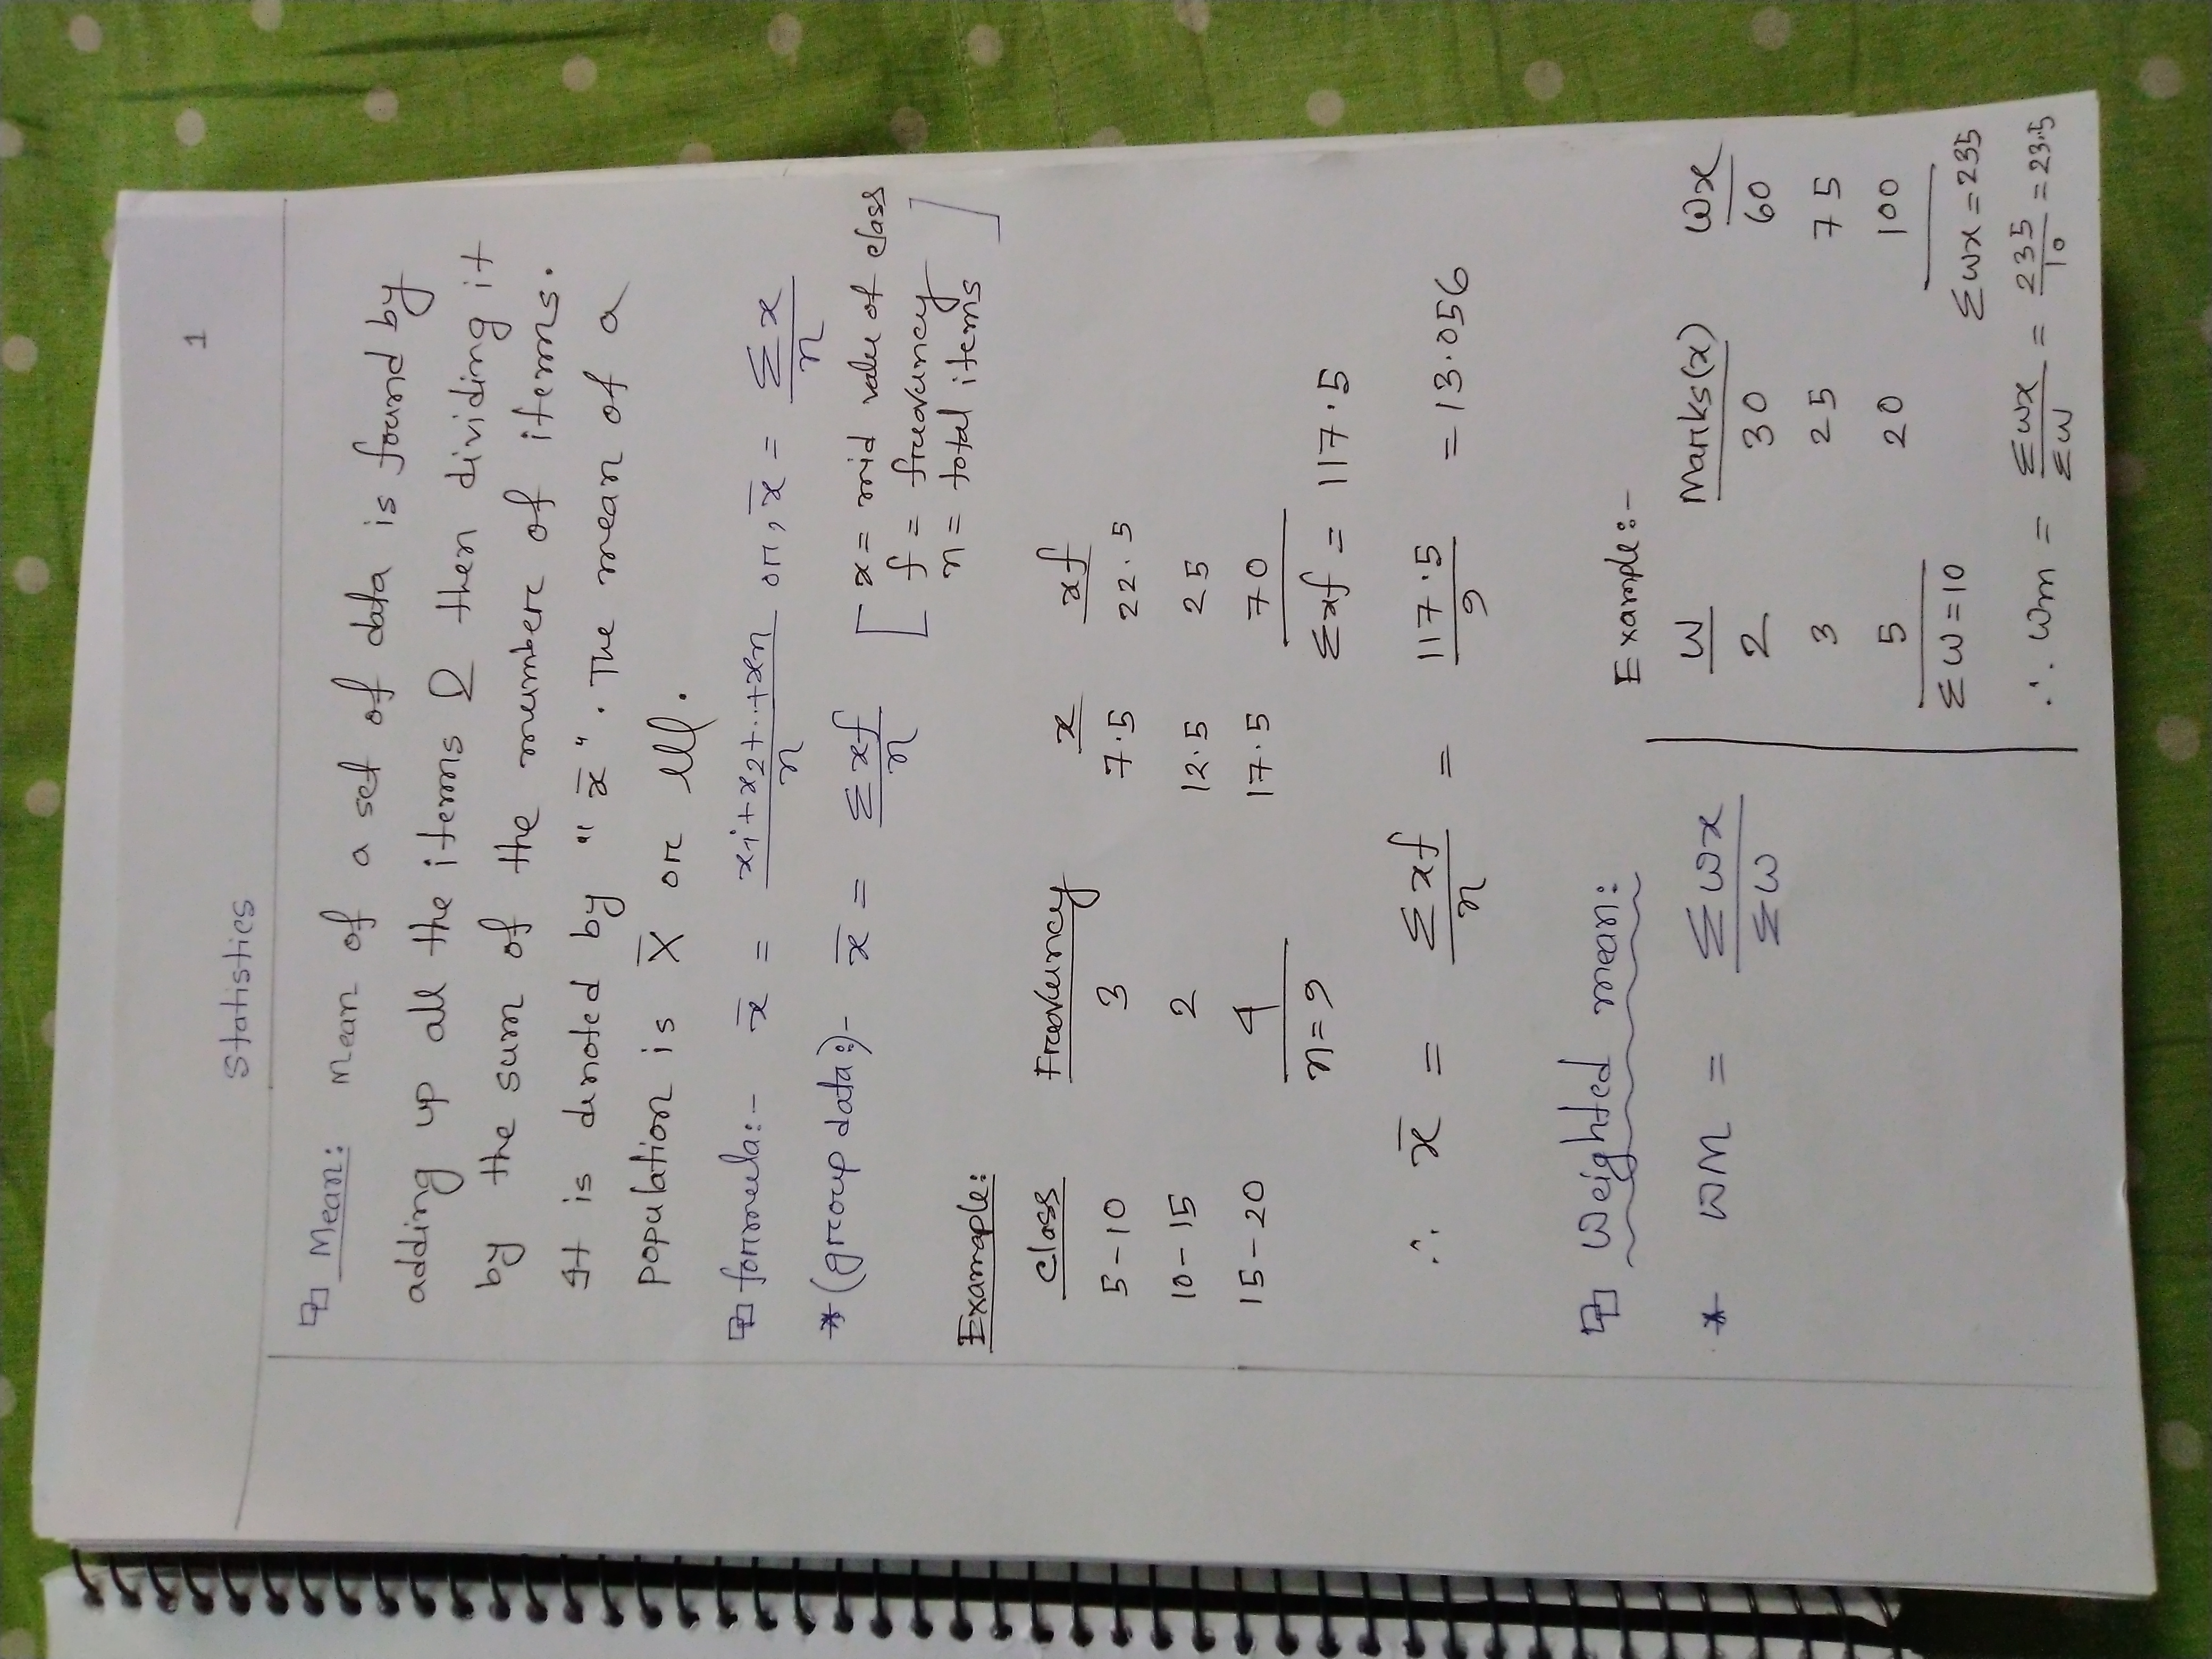 Statistics
1
Mean: Mean of a set of data is found by
adding up all the items & then dividing it
by the sum of the number of items.
It is denoted by "x̄". The mean of a
population is X̄ or
formula:- x̄ = (x₁+x₂+...+xn)/n or, x̄ = Σx/n
* (group data):- x̄ = Σxf/n [x = mid value of class
f = frequency
n = total items]
Example:
Class Frequency x xf
5-10 3 7.5 22.5
10-15 2 12.5 25
15-20 4 17.5 70
n=9 Σxf = 117.5
∴ x̄ = Σxf/n = 117.5/9 = 13.056
Weighted mean:
* WM = Σwx/Σw
Example:-
W Marks(x) Wx
2 30 60
3 25 75
5 20 100
ΣW=10 Σwx=235
∴ Wm = Σwx/Σw = 235/10 = 23.5